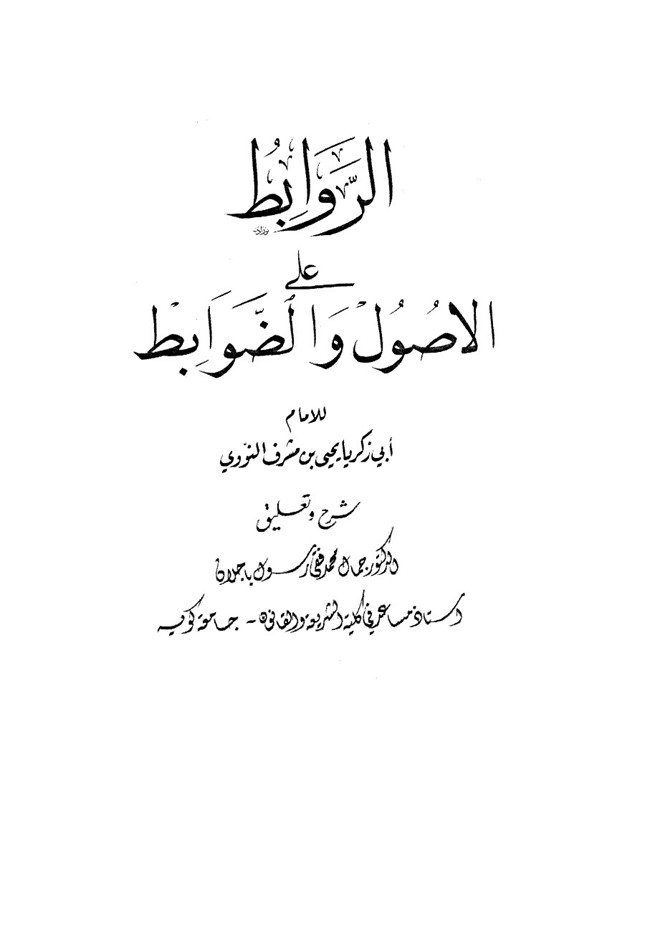 الرَّوَابِطُ
على
الاصُولْ وَالضَّوَابِطْ
للامام
أبي زكريا يحيى بن مشرف النووي
شرح وتعليق
الدكتور جمال محمد فقي رسول باجلان
استاذ مساعد في كلية الشريعة والقانون - جامعة كويه